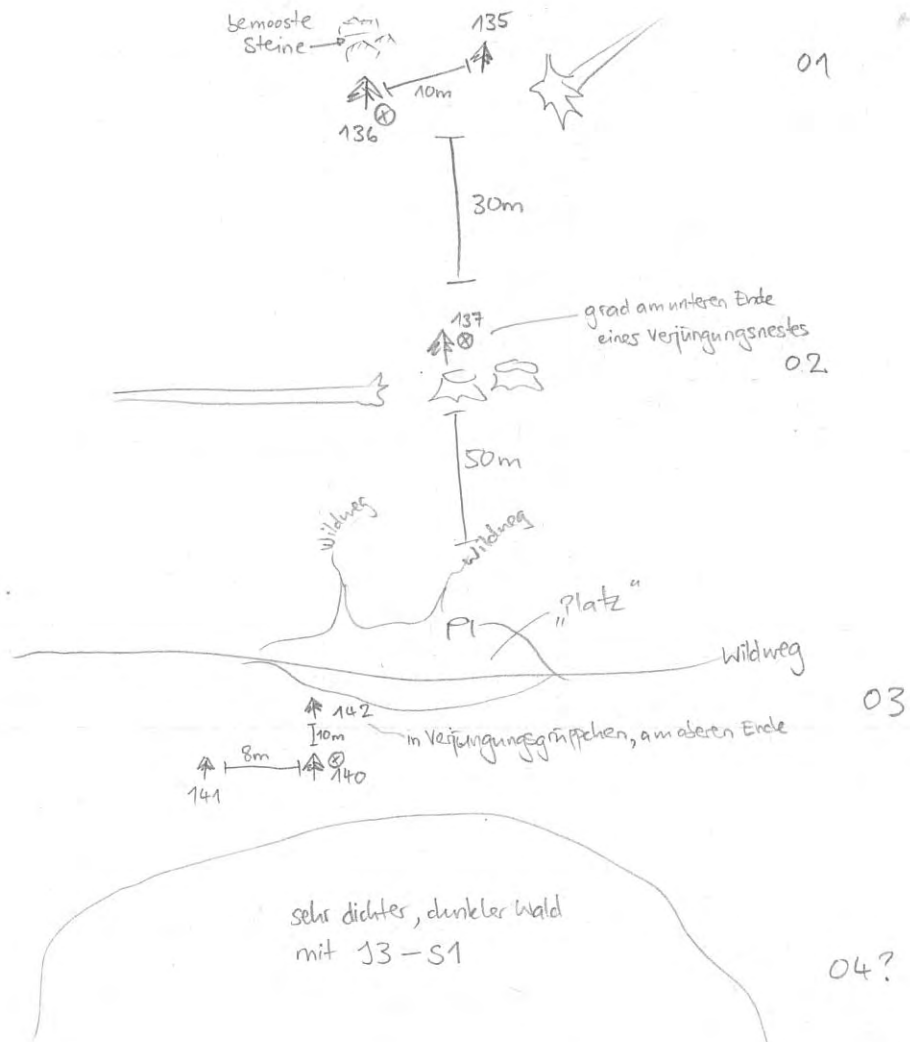 bemooste
Steine
135
01
10m
136
30m
137
grad am unteren Ende
eines Verjüngungsnestes
02
50m
Wildweg
Wildweg
"Platz"
PI
Wildweg
03
142
in Verjüngungsgrüppchen, am oberen Ende
10m
8m
140
141
sehr dichter, dunkler Wald
mit J3-S1
04?